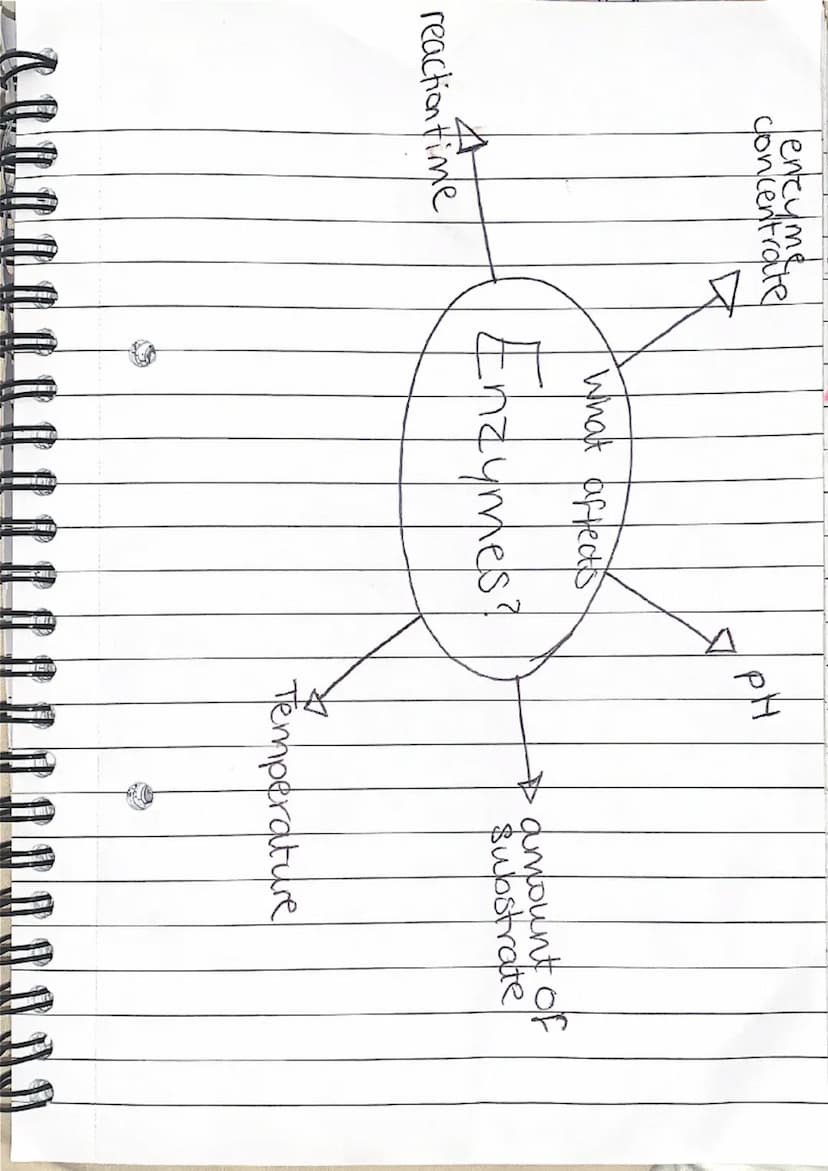 What affects
Enzymes?
enzyme
concentrate
pH
amount of
substrate
Temperature
reaction time